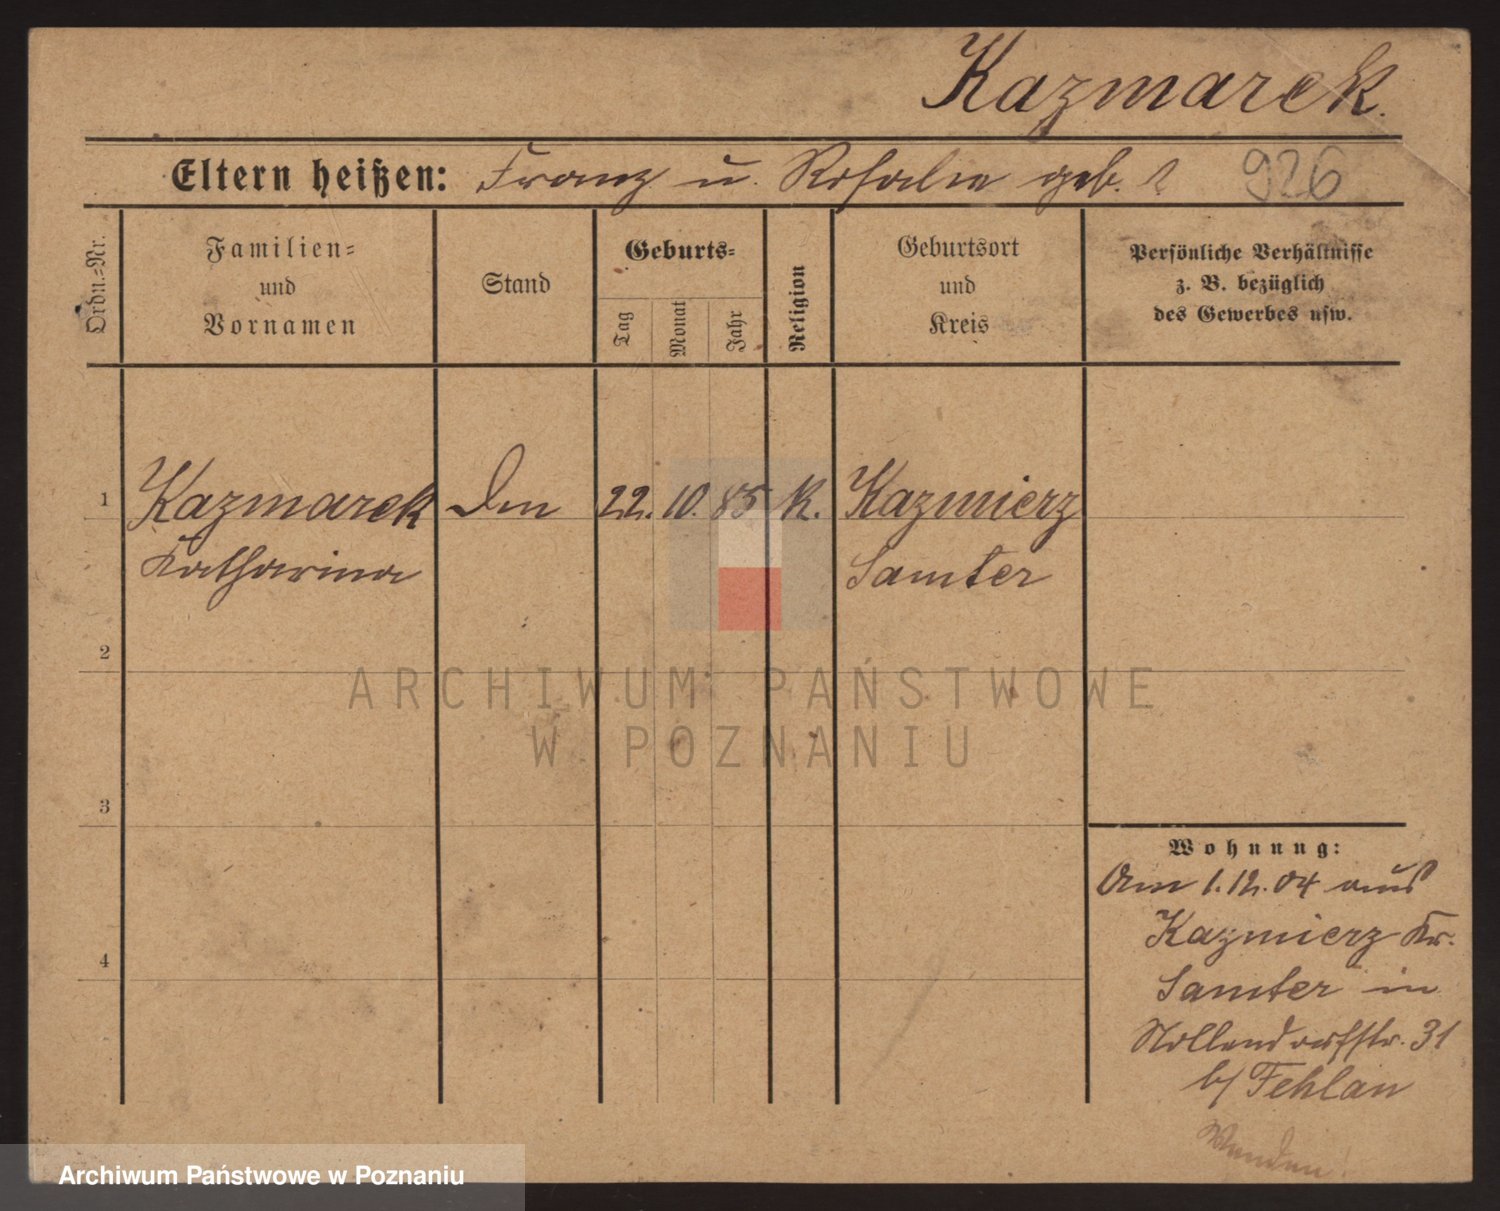 Kazmarek.
Eltern heißen: Franz u. Rosalie geb. ?
926
Ordn.=Nr.
Familien=
und
Vornamen
Stand
Geburts=
Tag
Monat
Jahr
Religion
Geburtsort
und
Kreis
Persönliche Verhältnisse
z. B. bezüglich
des Gewerbes usw.
1 Kazmarek 22. 10. 85 K. Kazmierz
Katharina Samter
2
ARCHIWUM PAŃSTWOWE
W POZNANIU
3
Wohnung:
Am 1.12.04 aus
Kazmierz Kr.
4
Samter in
Nollendorfstr. 31
b/ Fehlan
Wenden!
Archiwum Państwowe w Poznaniu